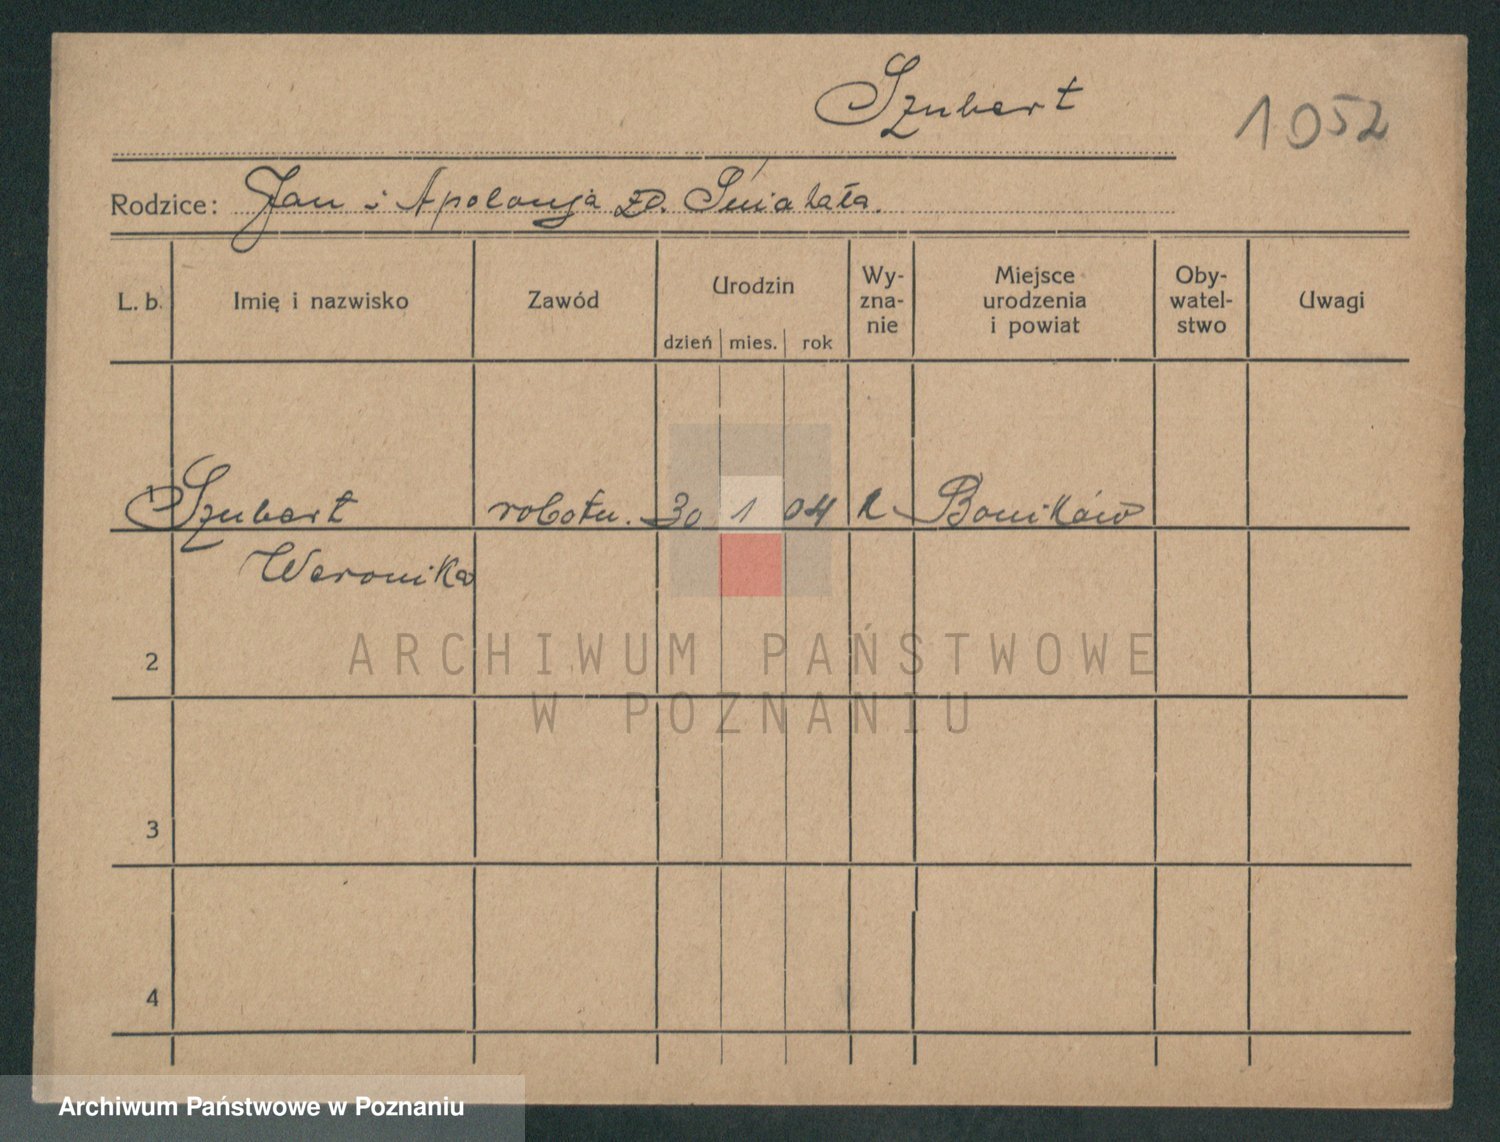 Szubert
1052
Rodzice: Jan i Apolonja zd. Świahała.
L. b.
Imię i nazwisko
Zawód
Urodzin
dzień mies. rok
Wy-
zna-
nie
Miejsce
urodzenia
i powiat
Oby-
watel-
stwo
Uwagi
1 Szubert robotn. 30 1 04 k Bonikowo
Weronika
2
3
4
ARCHIWUM PAŃSTWOWE
W POZNANIU
Archiwum Państwowe w Poznaniu